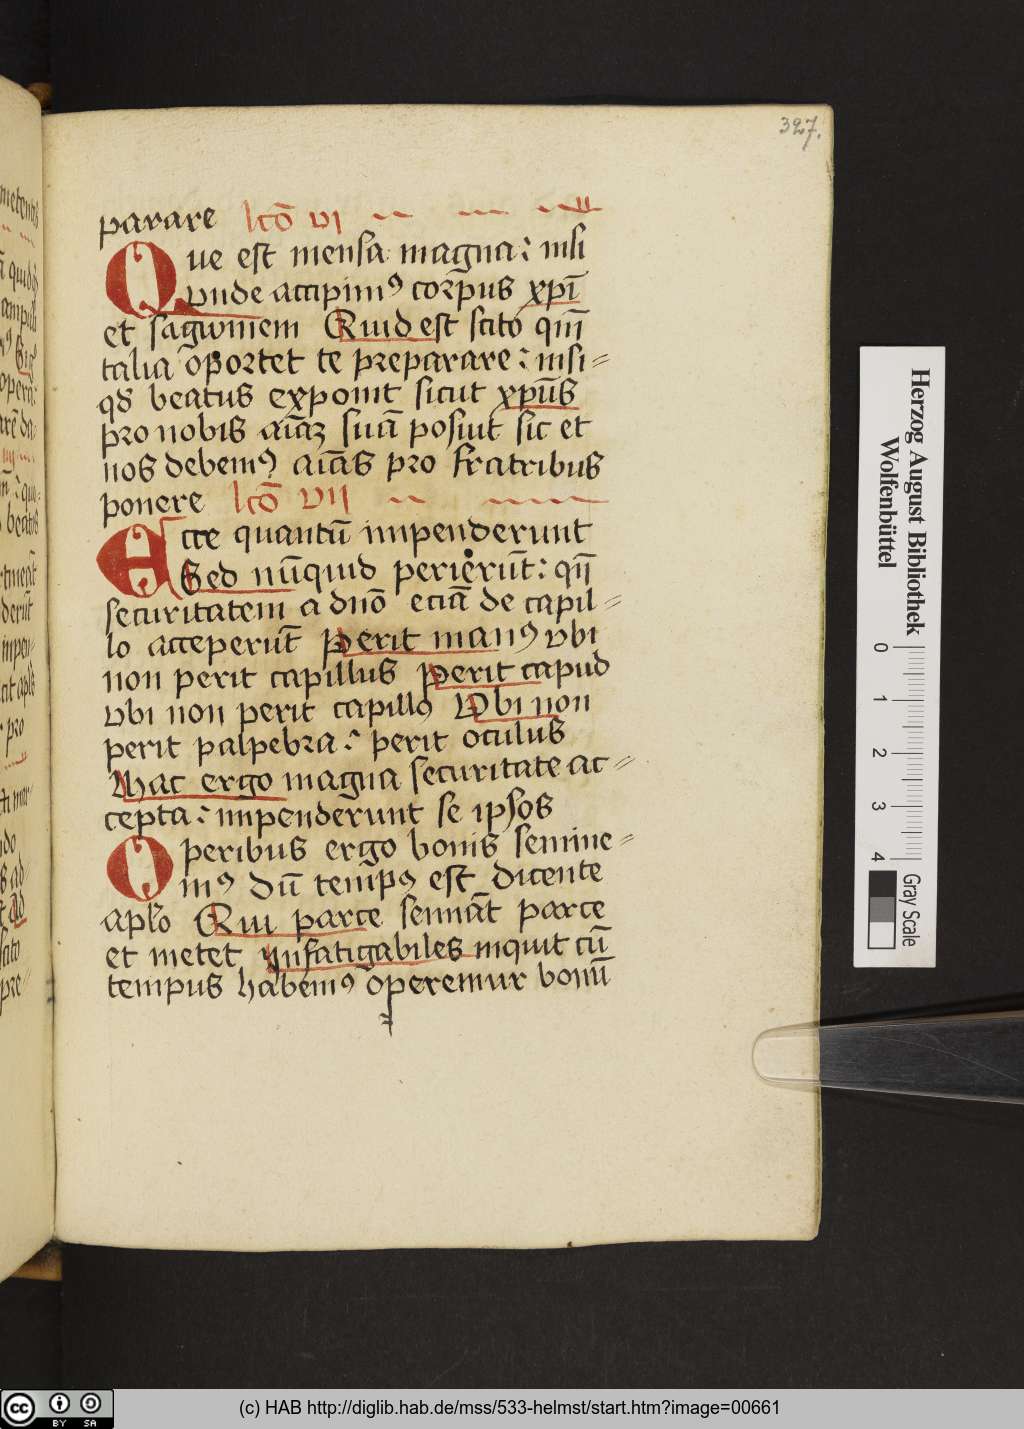 327.
parare lcō vi
Que est mensa magna: nisi
vnde accipimꝰ corꝑus xp̄i
et sagwinem Quid est scito qm̄
talia oportet te preparare: nisi=
qd̕ beatus exponit sicut xp̄us
pro nobis aīaꝫ suā posiut sic et
nos debemꝰ aīas pro fratribus
ponere lcō vii
Ecce quantū impenderunt
Sed nūquid perierūt: qn̄
securitatem a dn̄o eciā de capil=
lo acceperūt Perit manꝰ vbi
non perit capillus Perit capud
vbi non perit capillꝰ Vbi non
perit palpebra: perit oculus
Hac ergo magna securitate ac=
cepta: impenderunt se ipsos
Operibus ergo bonis semine=
mꝰ dū tempꝰ est dicente
aplo Qui parce semināt parce
et metet Infatigabiles inquit cū
tempus habemꝰ operemur bonū
Herzog August Bibliothek
Wolfenbüttel
0 1 2 3 4
Gray Scale
cc BY SA
(c) HAB http://diglib.hab.de/mss/533-helmst/start.htm?image=00661